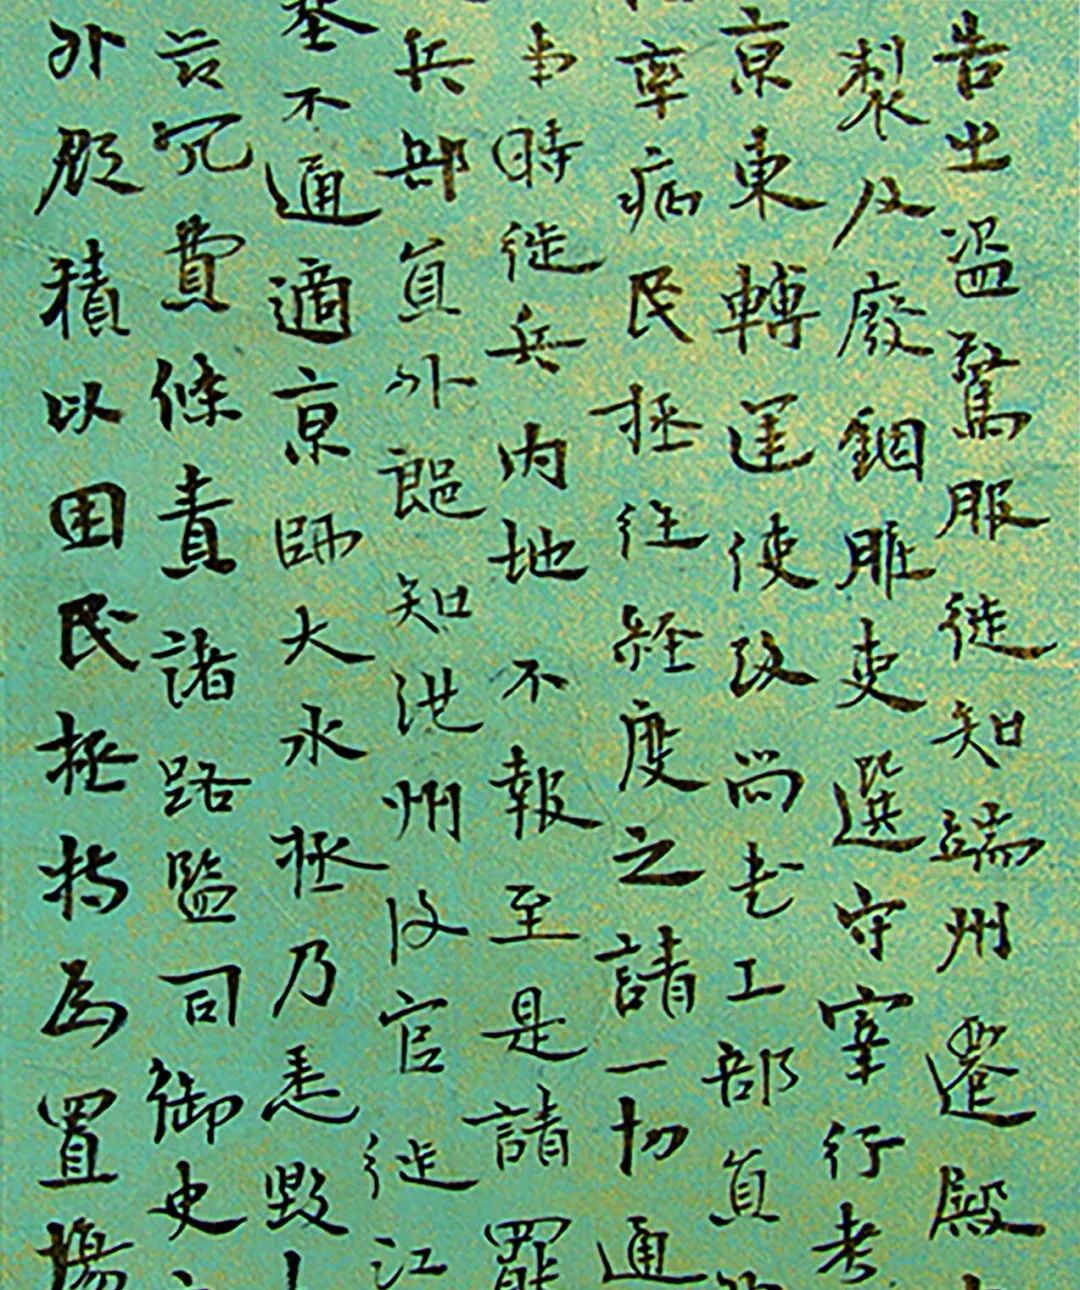 告之盜驚服徙知端州遷殿
製及廢錮贓吏選守宰行考
京東轉運使改尚書工部員
率病民拯往經度之請一切通
事時徙兵內地不報至是請罷
兵部員外郎知池州復官徙江
塞不通適京師大水拯乃悉毀
節冗費條責諸路監司御史
外郡積以困民拯特為置場